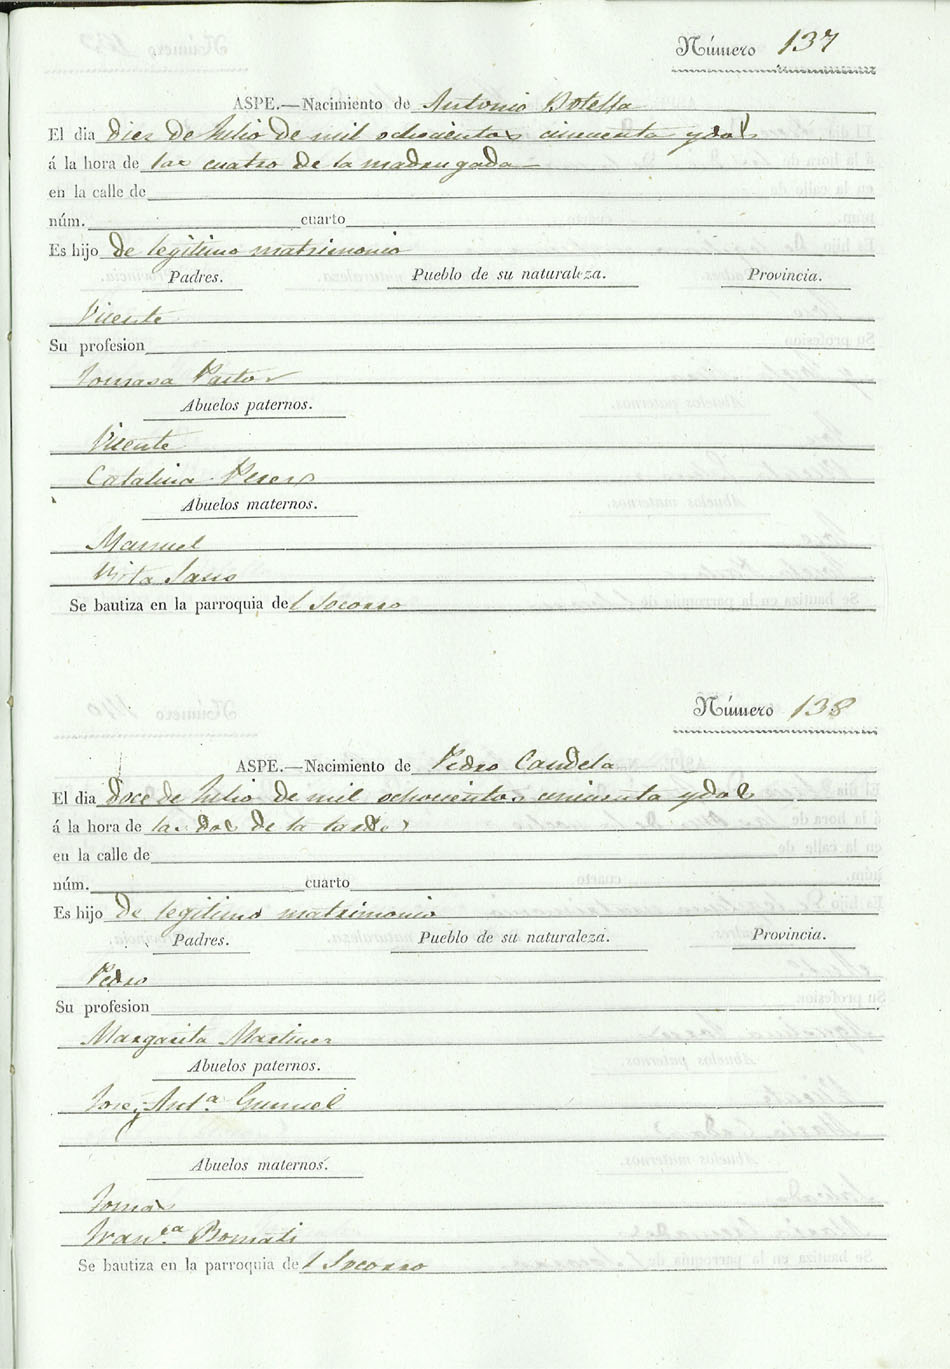 Número 137
ASPE.—Nacimiento de Antonio Botella
El dia diez de Julio de mil ochocientos cincuenta y dos
á la hora de las cuatro de la madrugada
en la calle de
núm. cuarto
Es hijo de legitimo matrimonio
Padres. Pueblo de su naturaleza. Provincia.
Vicente
Su profesion
Tomasa Pastor
Abuelos paternos.
Vicente
Catalina Perez
Abuelos maternos.
Manuel
Rita
Se bautiza en la parroquia del Socorro
Número 138
ASPE.—Nacimiento de Pedro Candela
El dia doce de Julio de mil ochocientos cincuenta y dos
á la hora de las dos de la tarde
en la calle de
núm. cuarto
Es hijo de legitimo matrimonio
Padres. Pueblo de su naturaleza. Provincia.
Pedro
Su profesion
Margarita Martinez
Abuelos paternos.
Jose y Antª
Abuelos maternos.
Tomas
Franᶜª
Se bautiza en la parroquia del Socorro